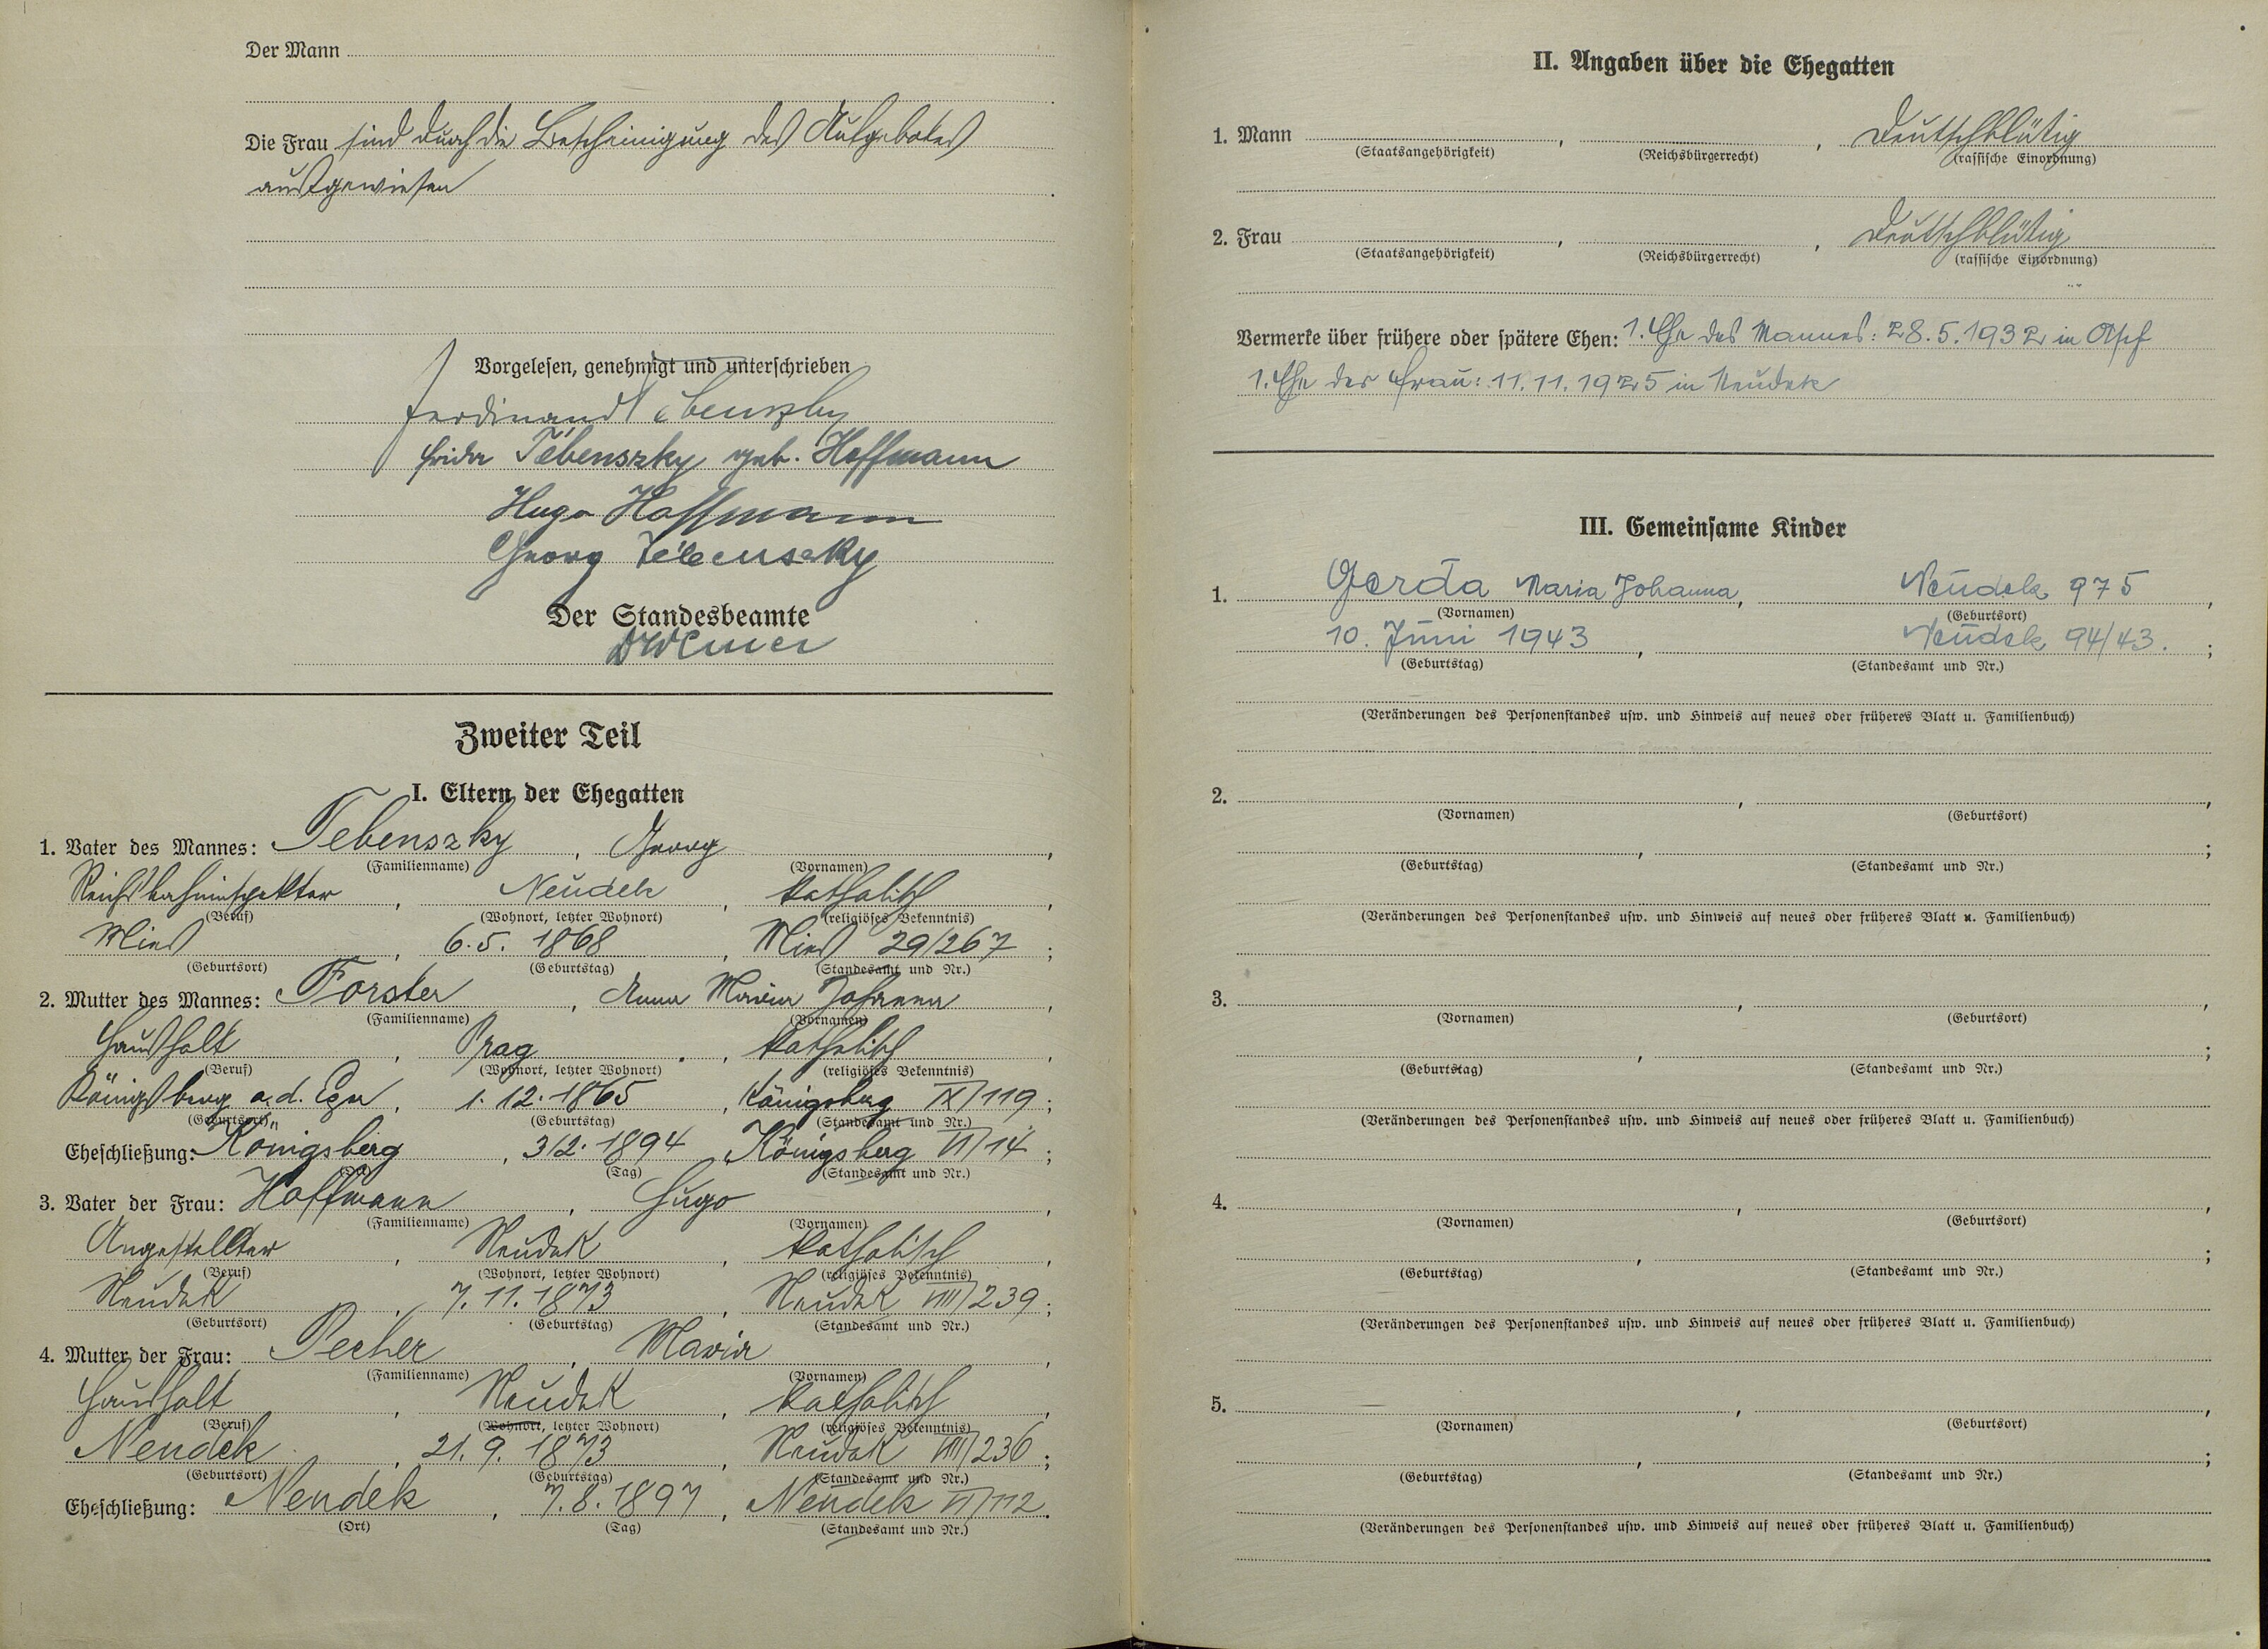 Der Mann
Die Frau sind durch die Bescheinigung des Aufgebotes
ausgewiesen
Vorgelesen, genehmigt und unterschrieben
Ferdinand Tebenszky
Frida Tébenszky geb. Hoffmann
Hugo Hoffmann
Georg Tébenszky
Der Standesbeamte
Zweiter Teil
I. Eltern der Ehegatten
1. Vater des Mannes: Tebenszky, Georg,
(Familienname) (Vornamen)
Reichsbahninspektor, Neudek, katholisch,
(Beruf) (Wohnort, letzter Wohnort) (religiöses Bekenntnis)
Mies, 6.5. 1868, Mies 29/267;
(Geburtsort) (Geburtstag) (Standesamt und Nr.)
2. Mutter des Mannes: Forster, Anna Maria Johanna,
(Familienname) (Vornamen)
Haushalt, Prag, katholisch,
(Beruf) (Wohnort, letzter Wohnort) (religiöses Bekenntnis)
Königsberg a.d. Eger, 1.12.1865, Königsberg IX/119;
(Geburtsort) (Geburtstag) (Standesamt und Nr.)
Eheschließung: Königsberg, 3/2. 1894, Königsberg VI/14;
(Tag) (Standesamt und Nr.)
3. Vater der Frau: Hoffmann, Hugo,
(Familienname) (Vornamen)
Angestellter, Neudek, katholisch,
(Beruf) (Wohnort, letzter Wohnort) (religiöses Bekenntnis)
Neudek, 7.11.1873, Neudek VIII/239;
(Geburtsort) (Geburtstag) (Standesamt und Nr.)
4. Mutter der Frau: Pecher, Maria,
(Familienname) (Vornamen)
Haushalt, Neudek, katholisch,
(Beruf) (Wohnort, letzter Wohnort) (religiöses Bekenntnis)
Neudek, 21.9.1873, Neudek VIII/236;
(Geburtsort) (Geburtstag) (Standesamt und Nr.)
Eheschließung: Neudek, 7.8.1897, Neudek VI/112.
(Ort) (Tag) (Standesamt und Nr.)
II. Angaben über die Ehegatten
1. Mann , , Deutschblütig
(Staatsangehörigkeit) (Reichsbürgerrecht) (rassische Einordnung)
2. Frau , , Deutschblütig
(Staatsangehörigkeit) (Reichsbürgerrecht) (rassische Einordnung)
Vermerke über frühere oder spätere Ehen: 1. Ehe des Mannes: 28.5.1932 in Asch
1. Ehe der Frau: 11.11.1925 in Neudek
III. Gemeinsame Kinder
1. Gerda Maria Johanna, Neudek 975,
(Vornamen) (Geburtsort)
10. Juni 1943, Neudek 94/43.;
(Geburtstag) (Standesamt und Nr.)
(Veränderungen des Personenstandes usw. und Hinweis auf neues oder früheres Blatt u. Familienbuch)
2. , ,
(Vornamen) (Geburtsort)
, ;
(Geburtstag) (Standesamt und Nr.)
(Veränderungen des Personenstandes usw. und Hinweis auf neues oder früheres Blatt u. Familienbuch)
3. , ,
(Vornamen) (Geburtsort)
, ;
(Geburtstag) (Standesamt und Nr.)
(Veränderungen des Personenstandes usw. und Hinweis auf neues oder früheres Blatt u. Familienbuch)
4. , ,
(Vornamen) (Geburtsort)
, ;
(Geburtstag) (Standesamt und Nr.)
(Veränderungen des Personenstandes usw. und Hinweis auf neues oder früheres Blatt u. Familienbuch)
5. , ,
(Vornamen) (Geburtsort)
, ;
(Geburtstag) (Standesamt und Nr.)
(Veränderungen des Personenstandes usw. und Hinweis auf neues oder früheres Blatt u. Familienbuch)